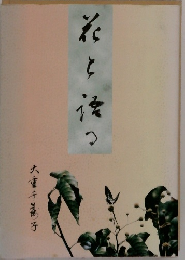 花と語る
大重千萬子